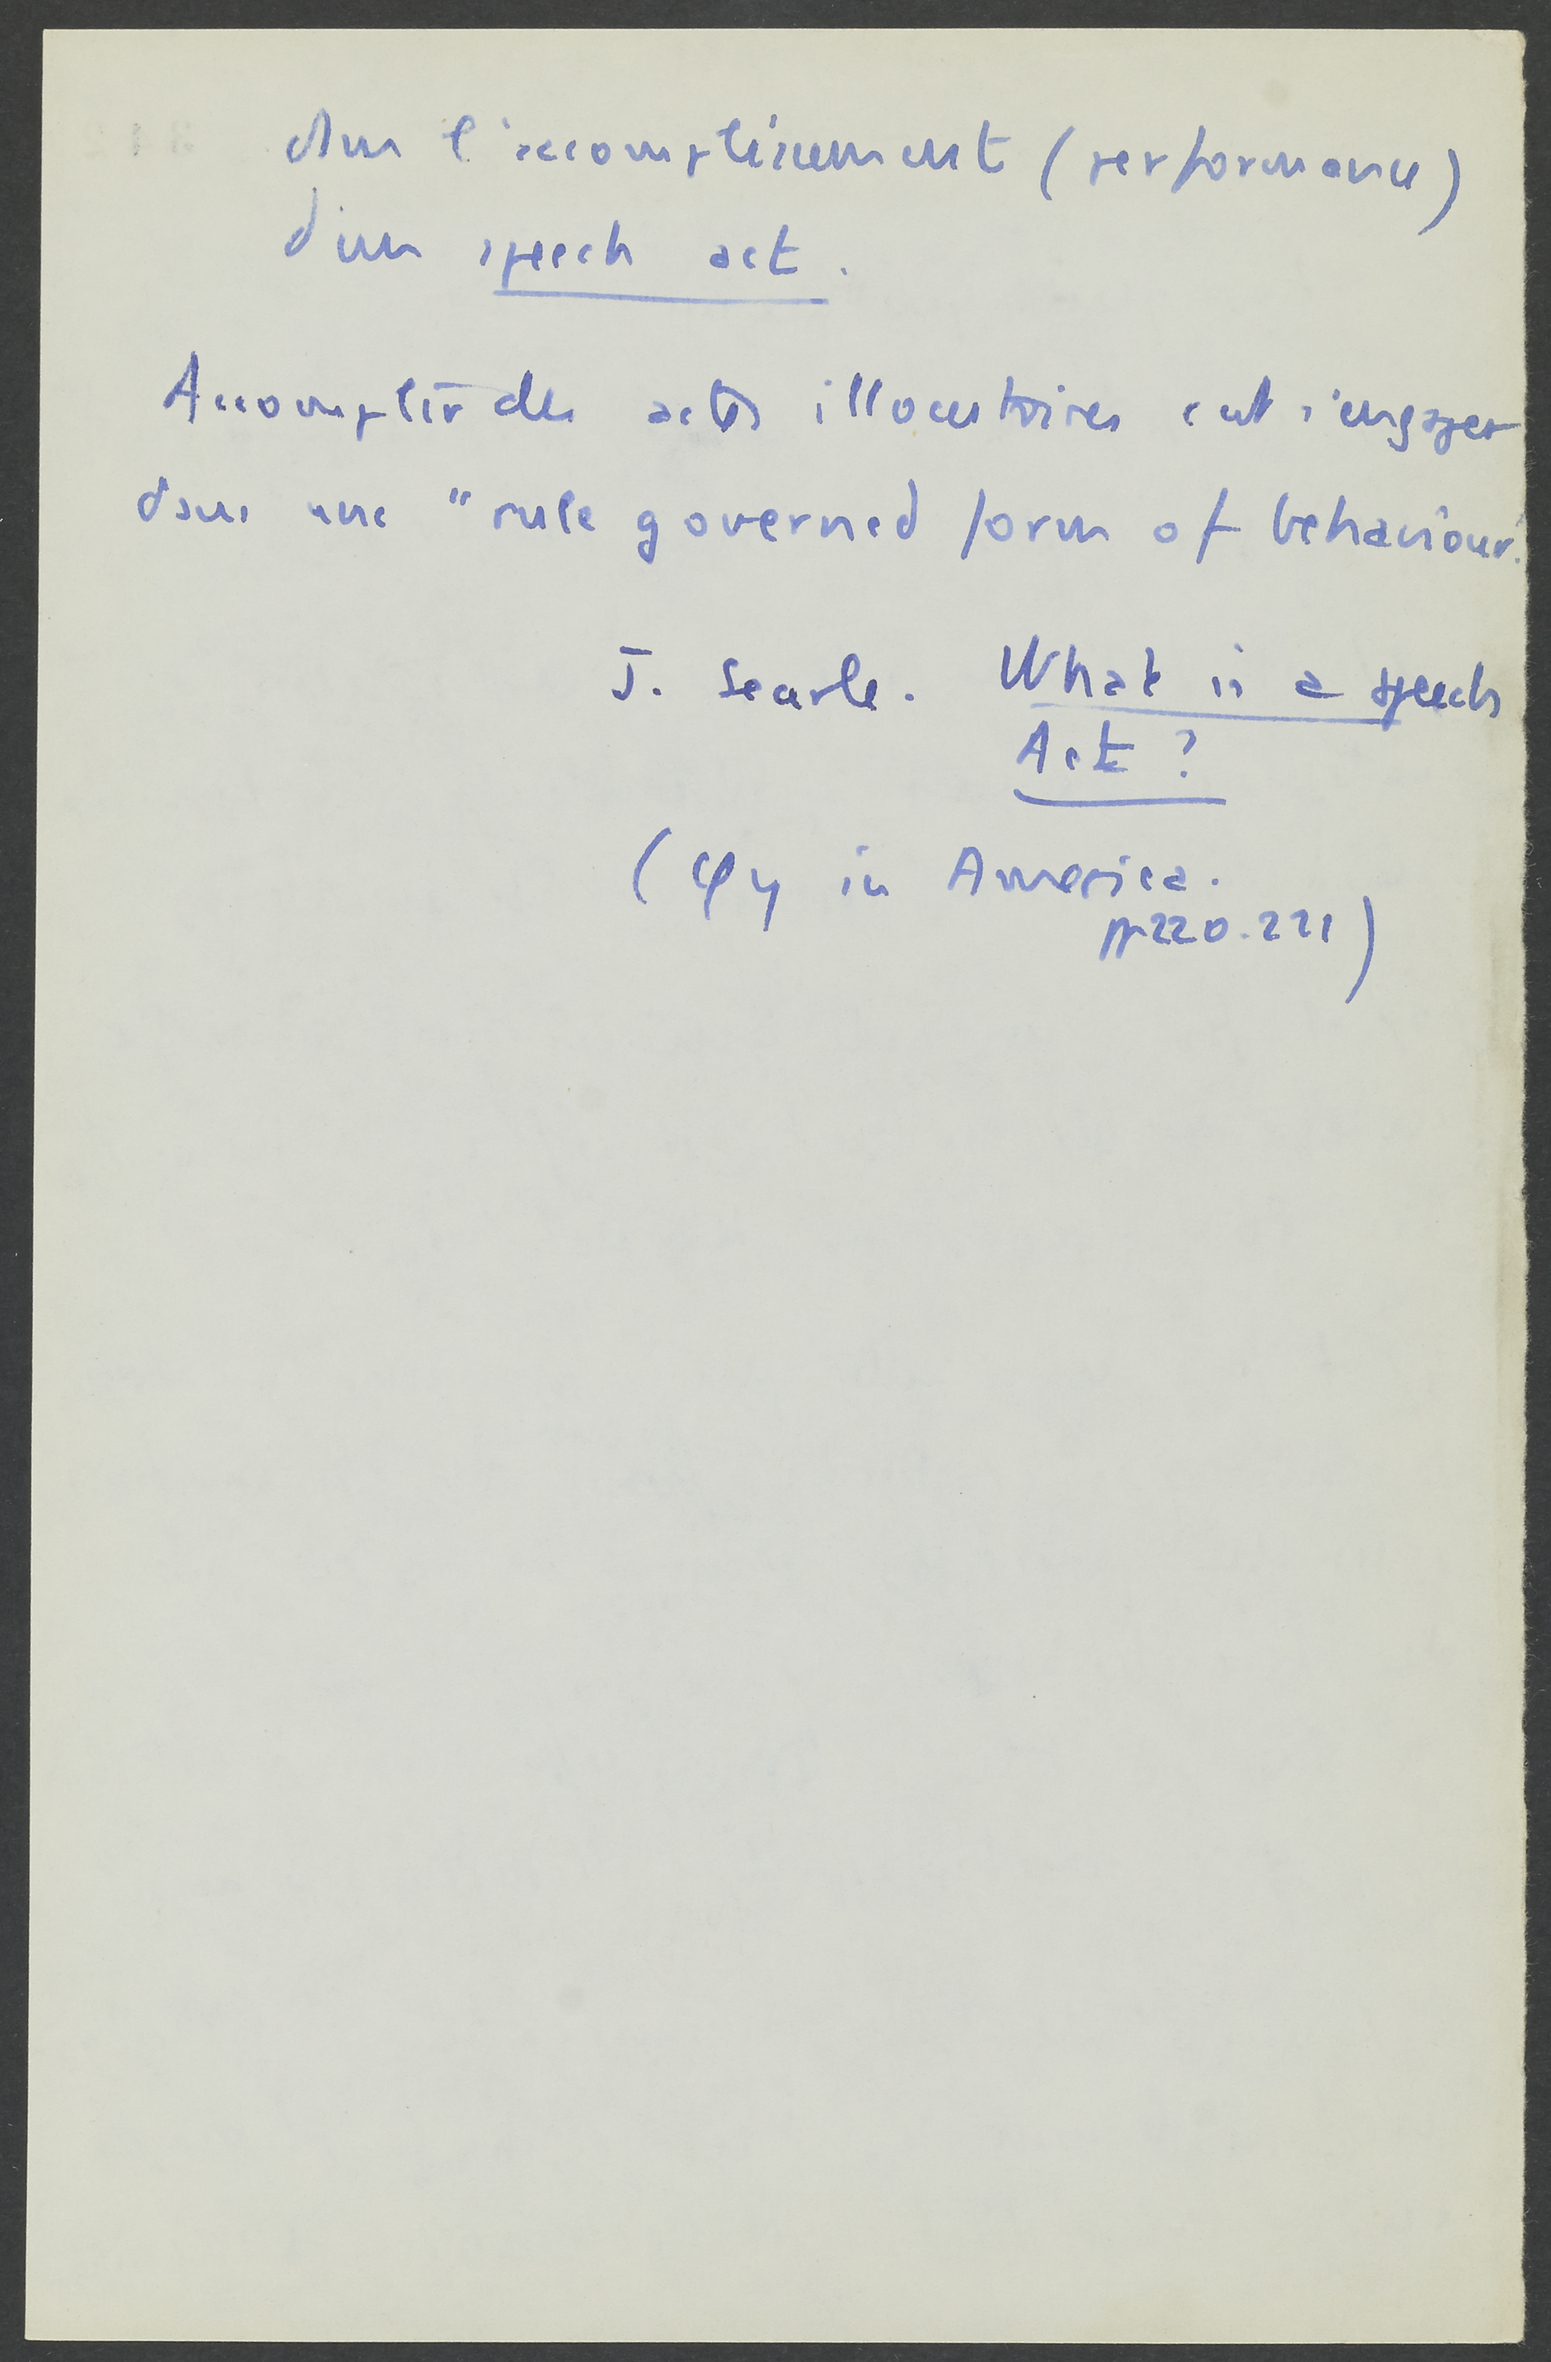 dans l'accomplissement (performance)
d'un speech act.
Accomplir des actes illocutoires c'est s'engager
dans une "rule governed form of behaviour".
J. Searle. What is a speech
Act ?
(φy in America.
pp 220-221)